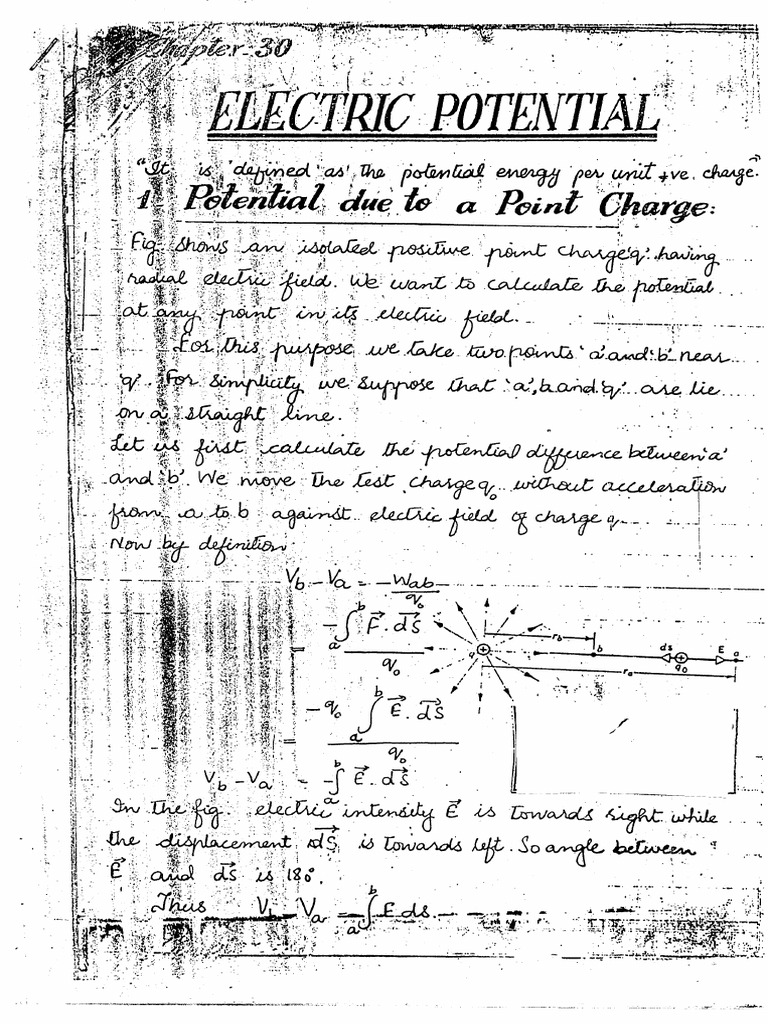 Chapter-30
ELECTRIC POTENTIAL
"It is 'defined' as' the potential energy per unit +ve charge."
1- Potential due to a Point Charge:
Fig shows an isolated positive point charge 'q' having
radial electric field. We want to calculate the potential
at any point in its electric field.
For this purpose we take two points 'a' and 'b' near
'q'. For simplicity we suppose that 'a', b and 'q' are lie
on a straight line.
Let us first calculate the potential difference between 'a'
and 'b'. We move the test charge q₀ without acceleration
from a to b against electric field of charge q
Now by definition
V_b - V_a = -W_ab / q₀
= -∫_a^b F⃗ . d⃗S / q₀
= -q₀ ∫_a^b E⃗ . d⃗S / q₀
V_b - V_a = -∫_a^b E⃗ . d⃗S
r_b
q
b
ds
q₀
E
a
r_a
In the fig. electric intensity E⃗ is towards right while
the displacement d⃗S is towards left. So angle between
E⃗ and d⃗S is 180°.
Thus V_b - V_a = -∫_a^b E ds